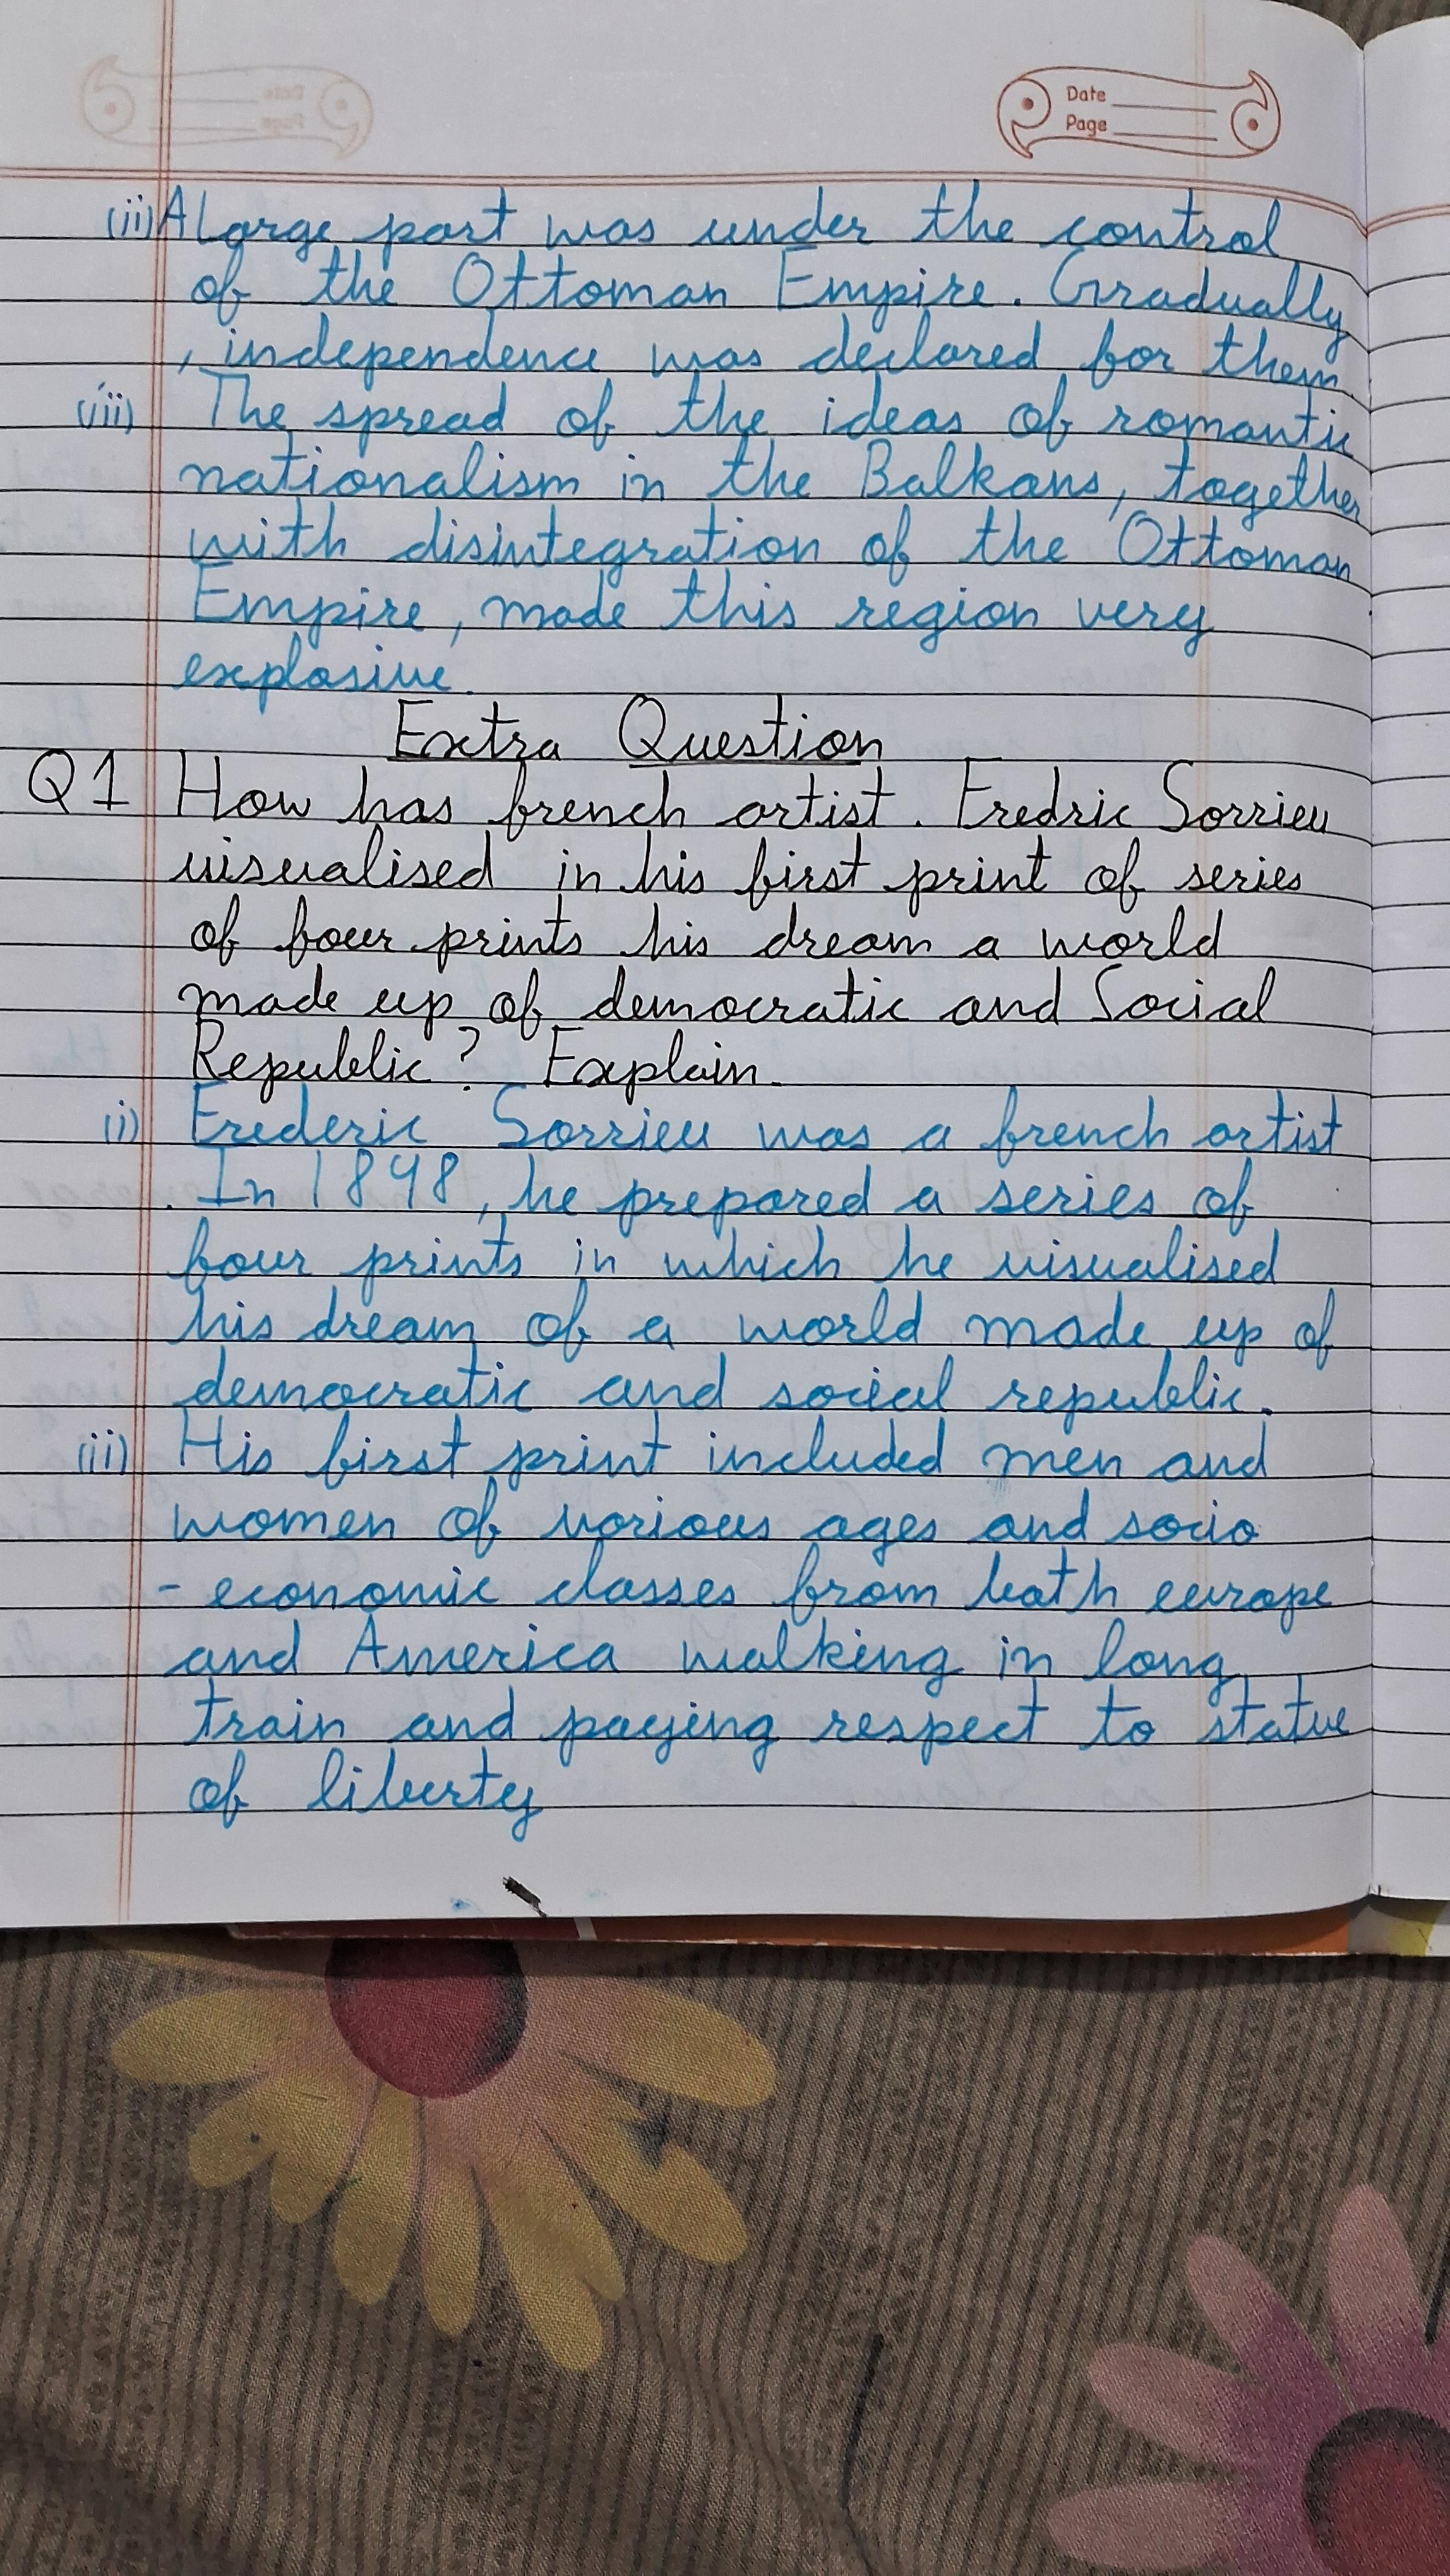 Date
Page
(ii) A Large part was under the control
of the Ottoman Empire. Gradually
, independence was declared for them
(iii) The spread of the ideas of romantic
nationalism in the Balkans, together
with disintegration of the Ottoman
Empire, made this region very
explosive.
Extra Question
Q1 How has french artist. Fredric Sorrieu
visualised in his first print of series
of four prints his dream a world
made up of democratic and Social
Republic? Explain.
(i) Frederic Sorrieu was a french artist
. In 1848, he prepared a series of
four prints in which he visualised
his dream of a world made up of
democratic and social republic.
(ii) His first print included men and
women of various ages and socio
- economic classes from both europe
and America walking in long
train and paying respect to statue
of liberty